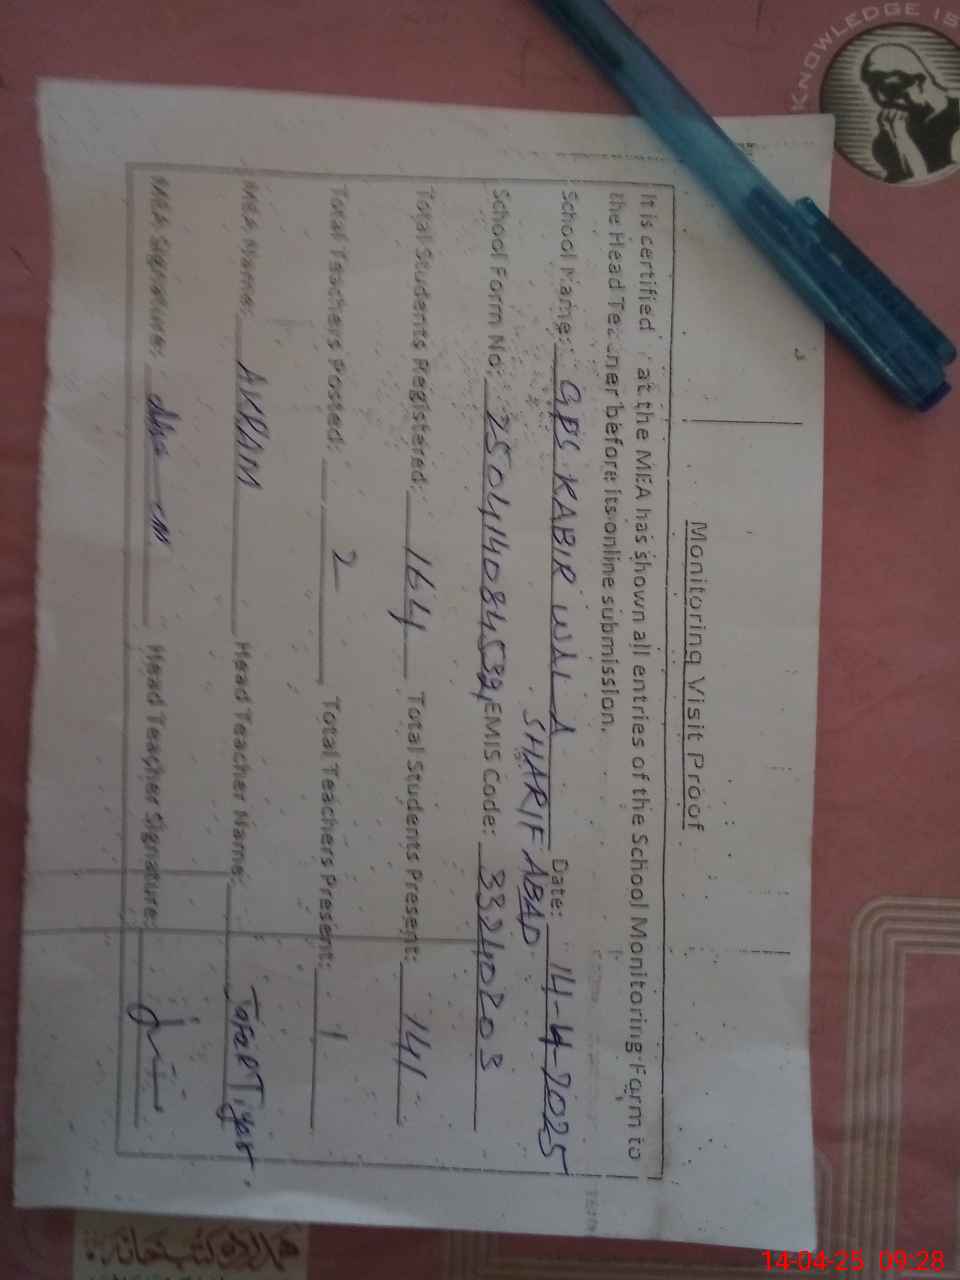 KNOWLEDGE IS
Monitoring Visit Proof
It is certified at the MEA has shown all entries of the School Monitoring Form to
the Head Teacher before its online submission.
School Name: GPS KABIR WALA Date: 14-4-2025
SHARIF ABAD
School Form No: EMIS Code: 33240203
Total Students Registered: 164 Total Students Present: 141
Total Teachers Posted: 2 Total Teachers Present: 1
MEA Name: AKRAM Head Teacher Name:
MEA Signature: Head Teacher Signature:
14-04-25 09:28